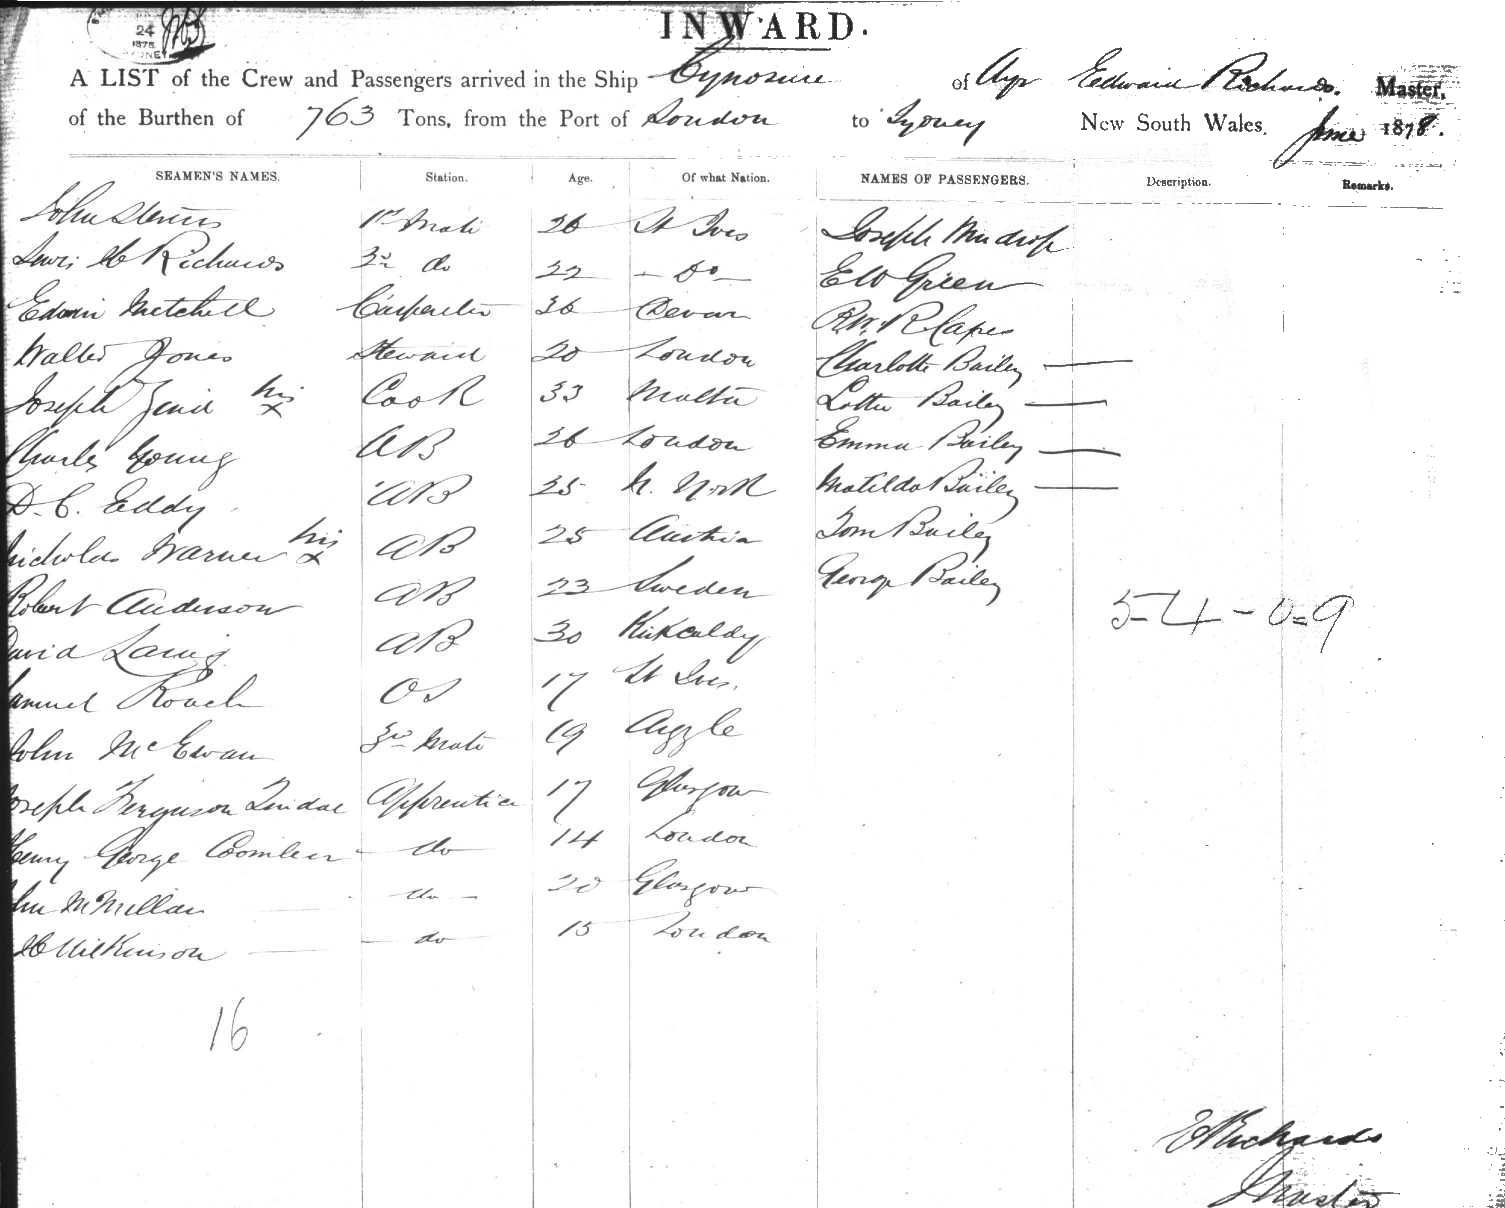 24
1878
INWARD.
A LIST of the Crew and Passengers arrived in the Ship Cynosure of Ayr Edward Richards. Master,
of the Burthen of 763 Tons, from the Port of London to Sydney New South Wales, June 1878.
SEAMEN'S NAMES. Station. Age. Of what Nation. NAMES OF PASSENGERS. Description. Remarks.
John Stevens 1st Mate 26 St Ives Joseph
Lewis H Richards 2nd do 22 - Do - E W Green
Edwin Mitchell Carpenter 36 Devon R Capes
Walter Jones Steward 20 London Charlotte Bailey
Joseph his x Cook 33 Malta Lottie Bailey
Charles Young AB 26 London Emma Bailey
D. C. Eddy AB 25 N. York Matilda Bailey
Nicholas Warner his x AB 25 Austria Tom Bailey
Robert Anderson AB 23 Sweden George Bailey
David Laing AB 30 Kirkcaldy
5-4-0=9
Samuel Roach OS 17 St Ives.
John McEwan 3rd Mate 19 Argyle
Joseph Ferguson Apprentice 17 Glasgow
Henry George do 14 London
John McMillan do 20 Glasgow
H Wilkinson do 15 London
16
E Richards
Master